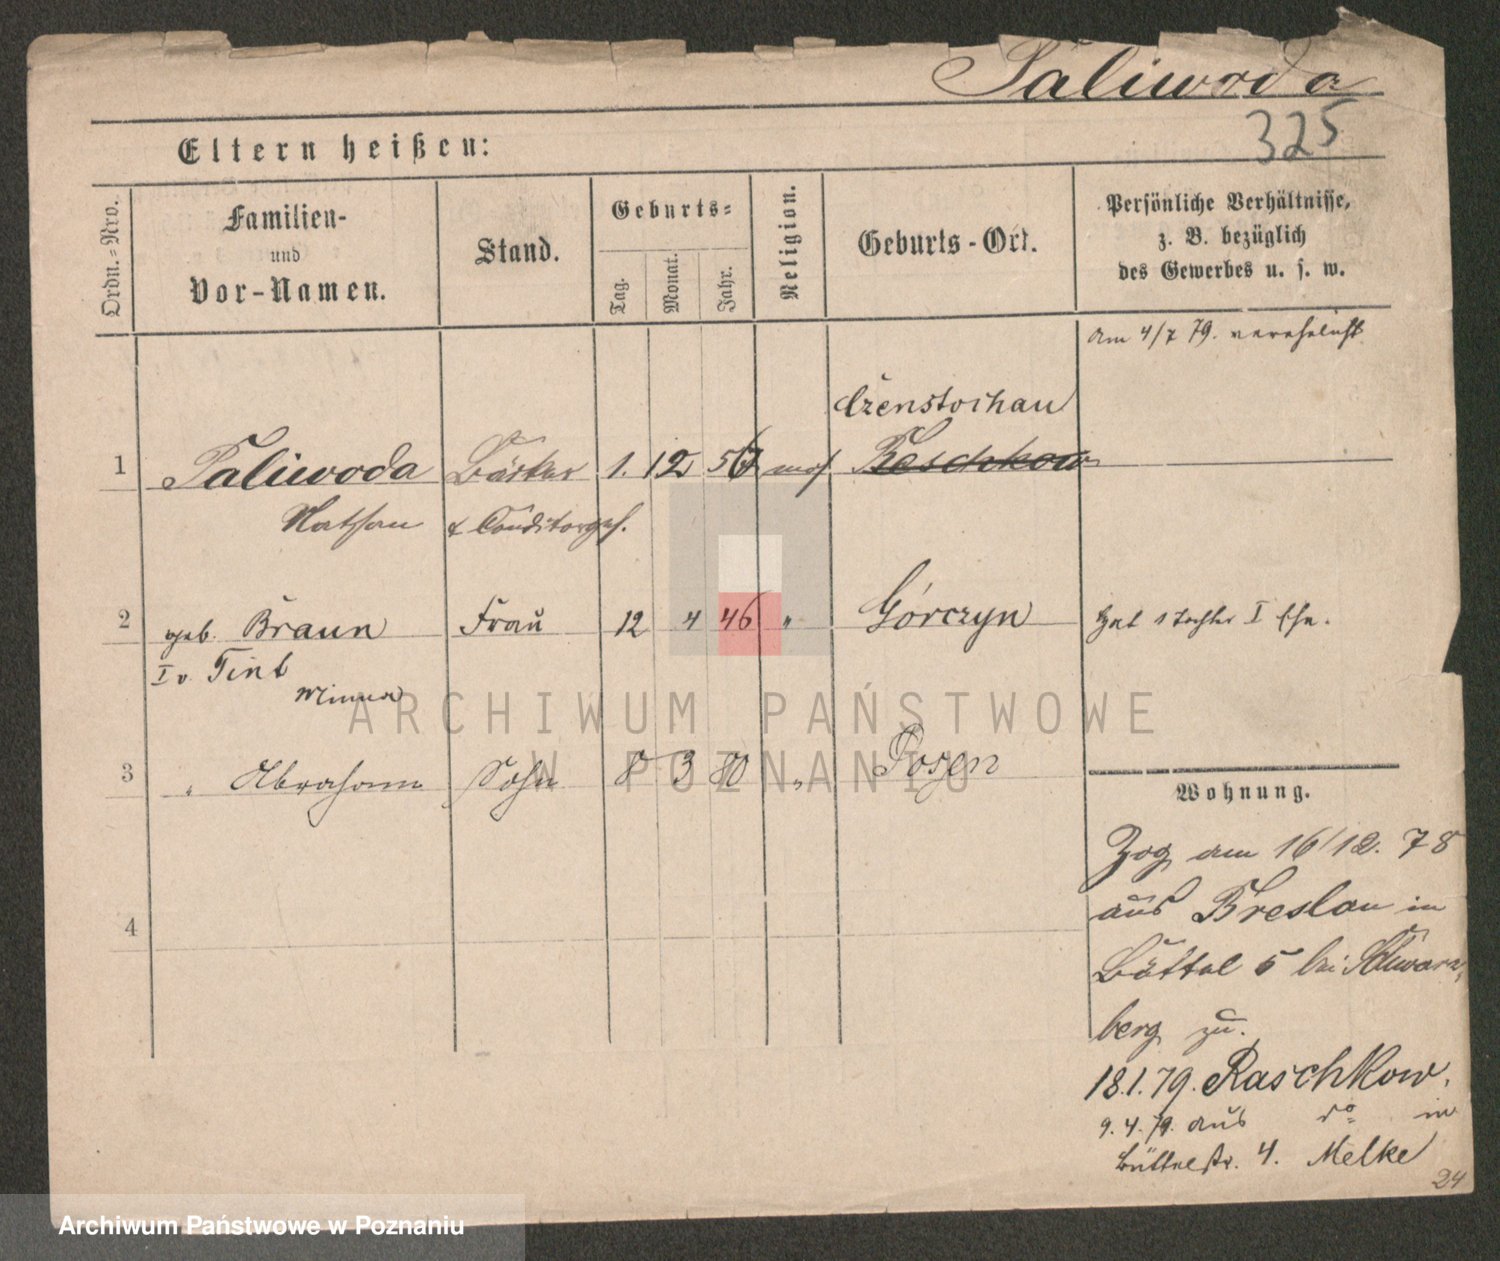 Paliwoda
325
Eltern heißen:
Ordn.=Nro.
Familien-
und
Vor-Namen.
Stand.
Geburts=
Tag.
Monat.
Jahr.
Religion.
Geburts-Ort.
Persönliche Verhältnisse,
z. B. bezüglich
des Gewerbes u. s. w.
am 4/7 79. verehelicht
Czenstochau
1 Paliwoda Bäcker 1. 12 mos Raschkow
Nathan & Conditorges.
2 geb. Braun Frau 12 4 46 " Górczyn Hat 1 Tochter I Ehe.
I v Tint
Minna
3 " Abraham Sohn 8 3 80 " Posen
Wohnung.
Zog am 16/12. 78
aus Breslau in
Büttel 5 bei Schwarz-
berg zu.
4
18.1.79. Raschkow.
9.4.79. aus do in
Büttelstr. 4. Melke
24
ARCHIWUM PAŃSTWOWE
W POZNANIU
Archiwum Państwowe w Poznaniu